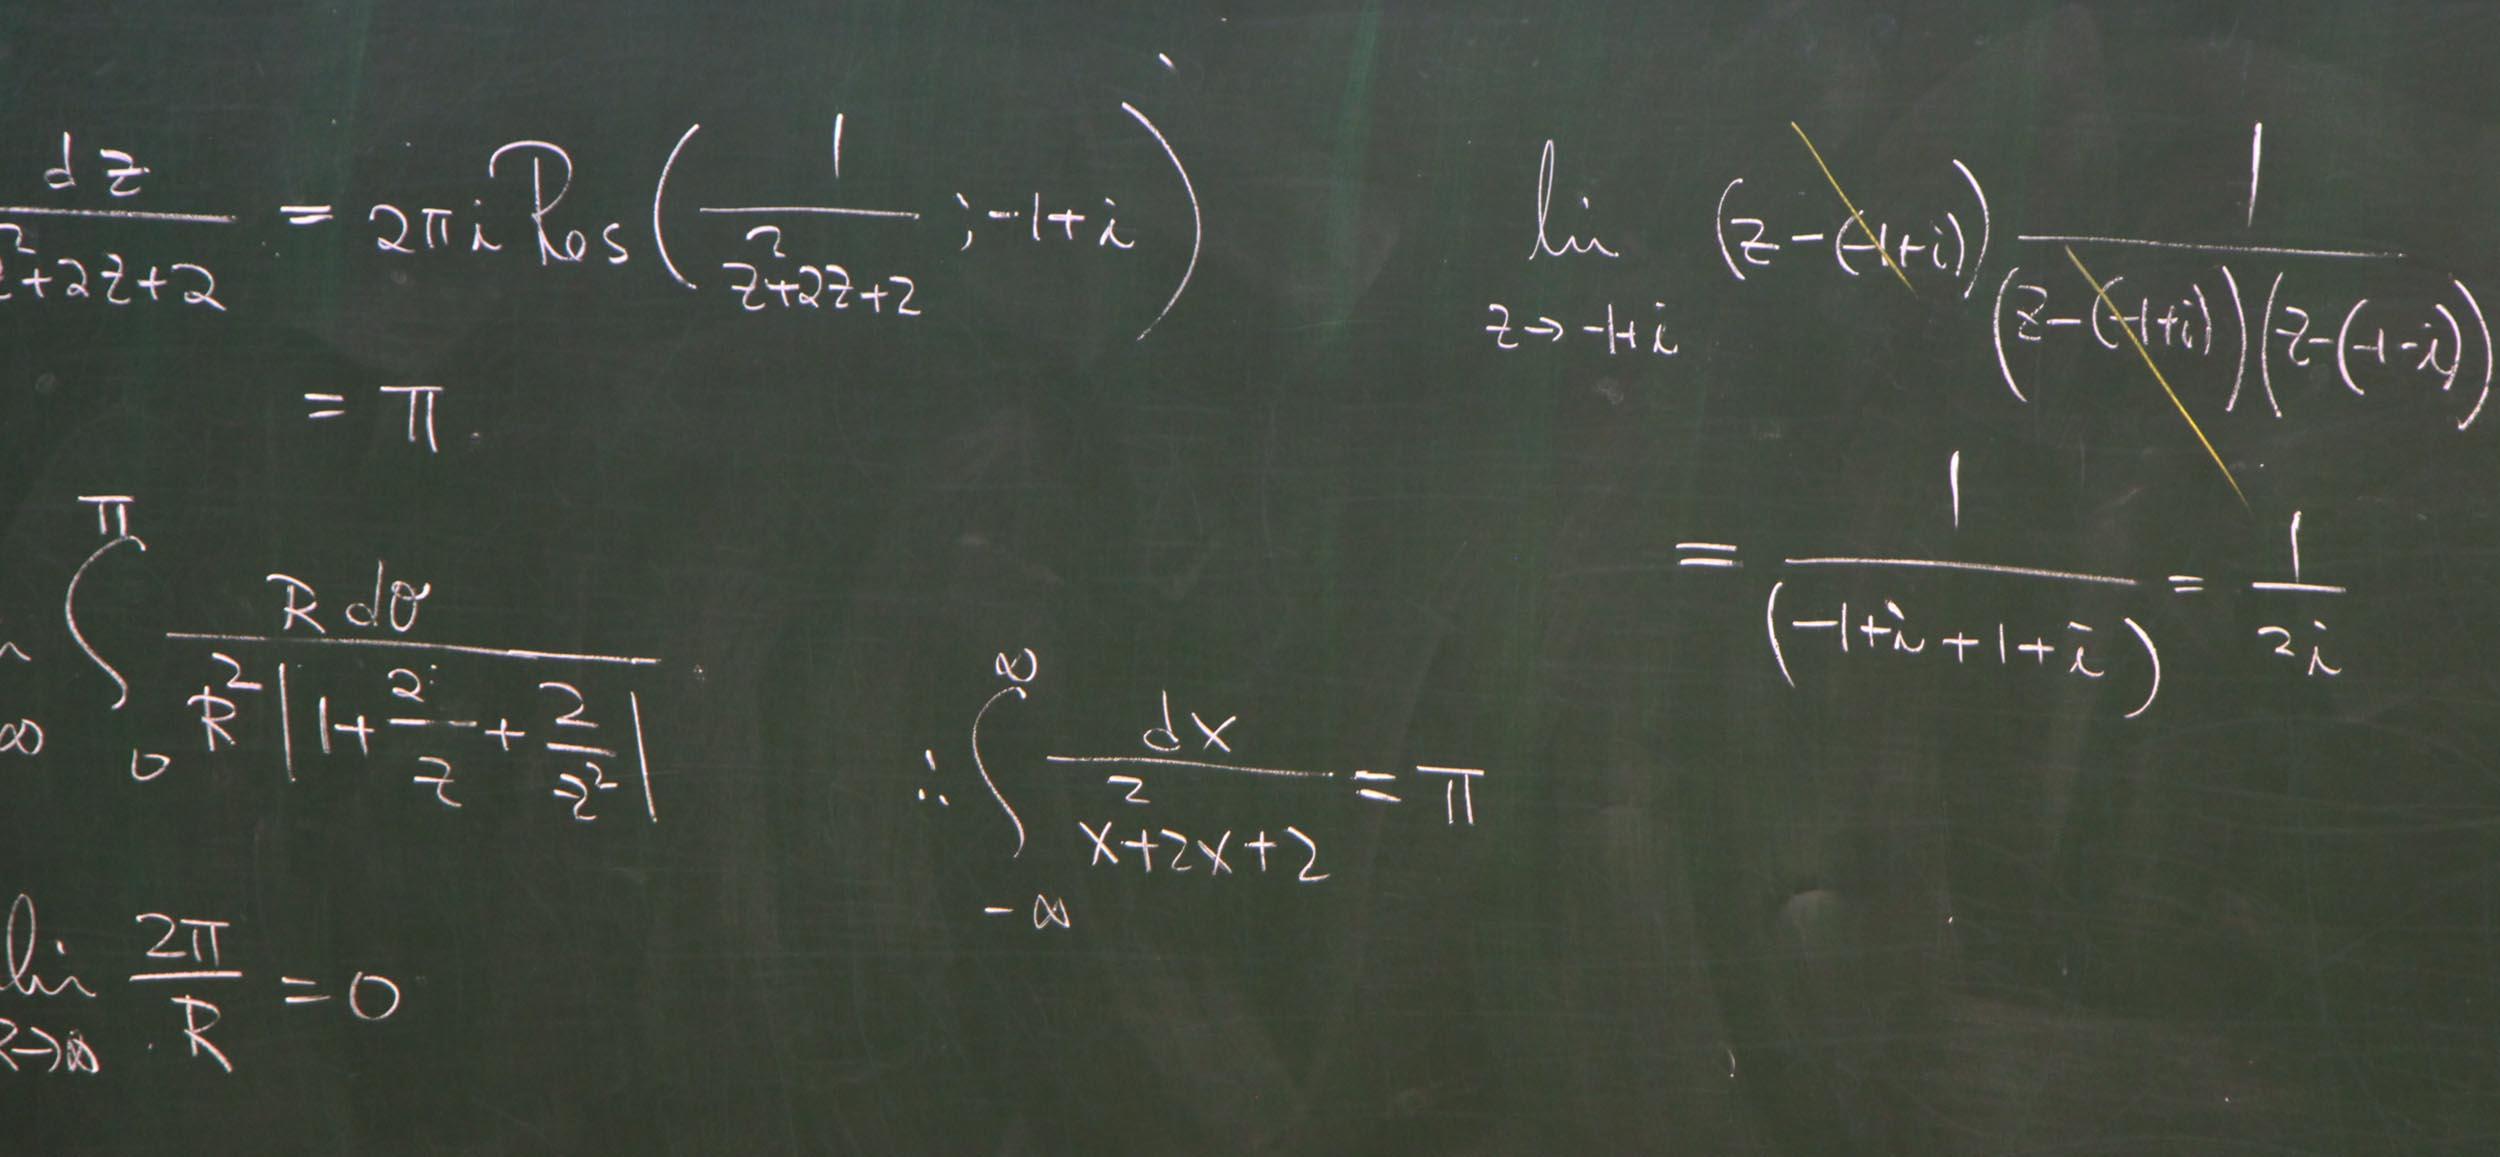 dz / z²+2z+2 = 2πi Res ( 1 / z²+2z+2 ; -1+i )
= π
lim z→-1+i (z-(-1+i)) 1 / (z-(-1+i))(z-(-1-i))
= 1 / (-1+i+1+i) = 1 / 2i
∫₀^π R dθ / R² |1+ 2/z + 2/z²|
∴ ∫_{-∞}^{∞} dx / x²+2x+2 = π
lim R→∞ 2π / R = 0